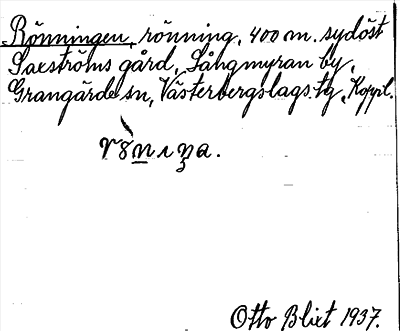 Rönningen, rönning, 400 m. sydöst
Saxströms gård, Sångmyran by,
Grangärde sn, Västerbergslags tg, Kopp.
Otto Blixt 1937.